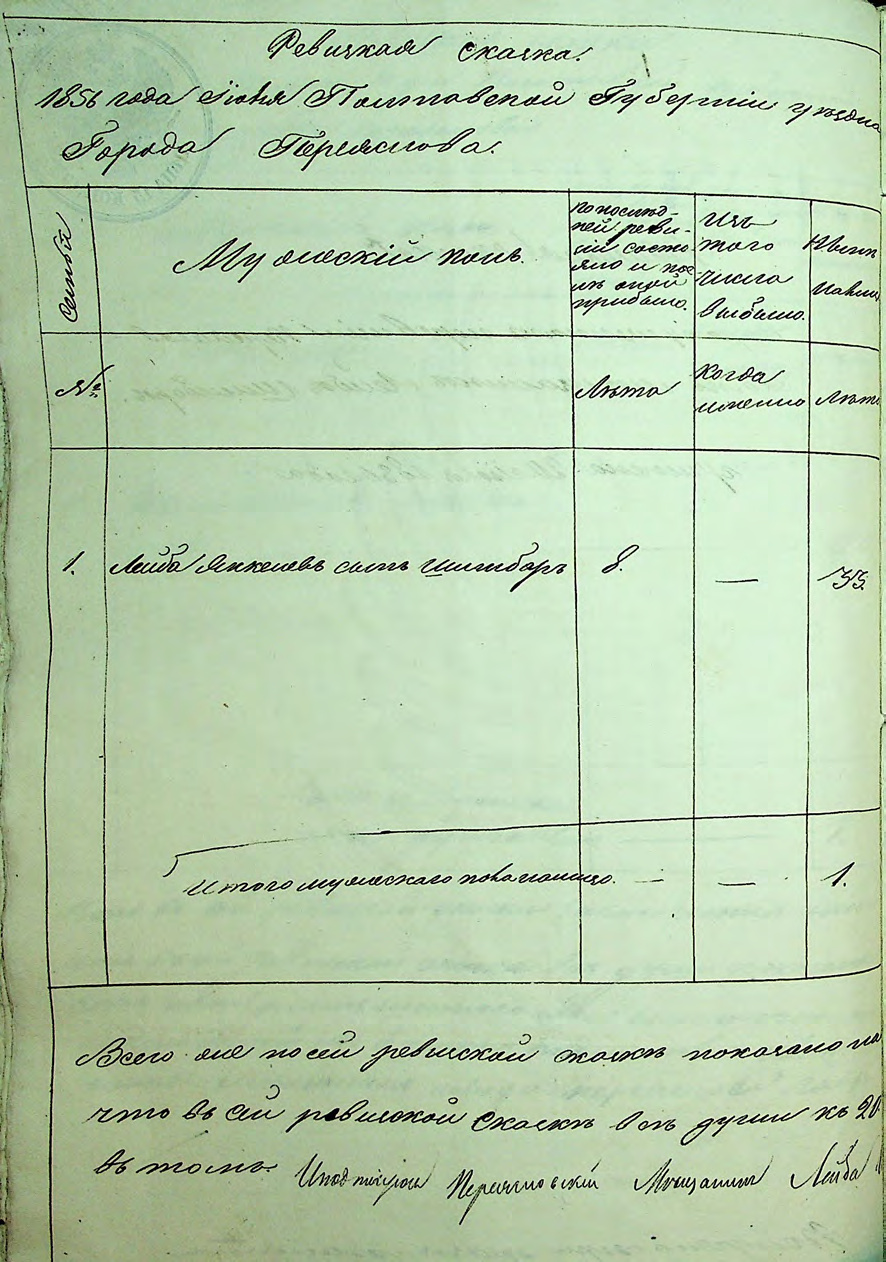 Ревизкая сказка.
1856 года Июня Полтовской Губерніи
Города Переяслова.
Семьи
Мужескій полъ.
По послед-
ней реви-
зіи состо-
яло и пос-
лѣ оной
прибыло.
Изъ
того
числа
выбыло.
Нынѣ
№
Лѣта
Когда
именно
Лѣта
1. Лейба Янкелевъ сынъ Шитбаръ 8. — 35.
Итого мужескаго пола налицо. — — 1.
Всего же по сей ревизкой сказкѣ показано на
что въ сей ревизской сказкѣ всѣ души къ 20
въ томъ Переясловскій Мещанинъ Лейба